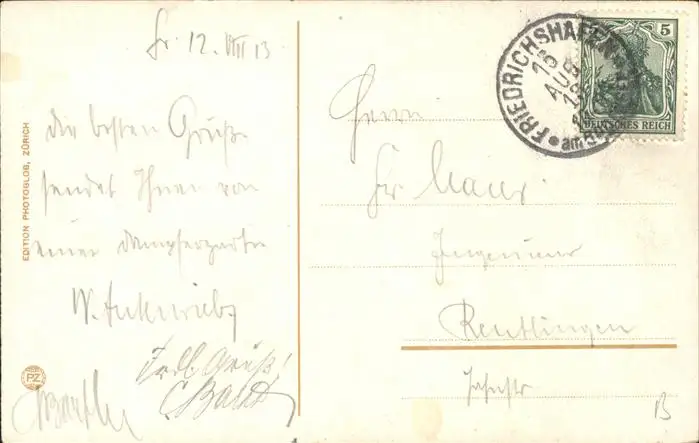 Fr. 12. VIII 13
die besten Grüße
sendet Ihnen von
einer Dampferpartie
W.
Frdl. Gruß!
EDITION PHOTOGLOB, ZÜRICH
PZ
FRIEDRICHSHAFEN
13
AUG
am
5
DEUTSCHES REICH
Herrn
Fr.
Ingenieur
Reutlingen
B